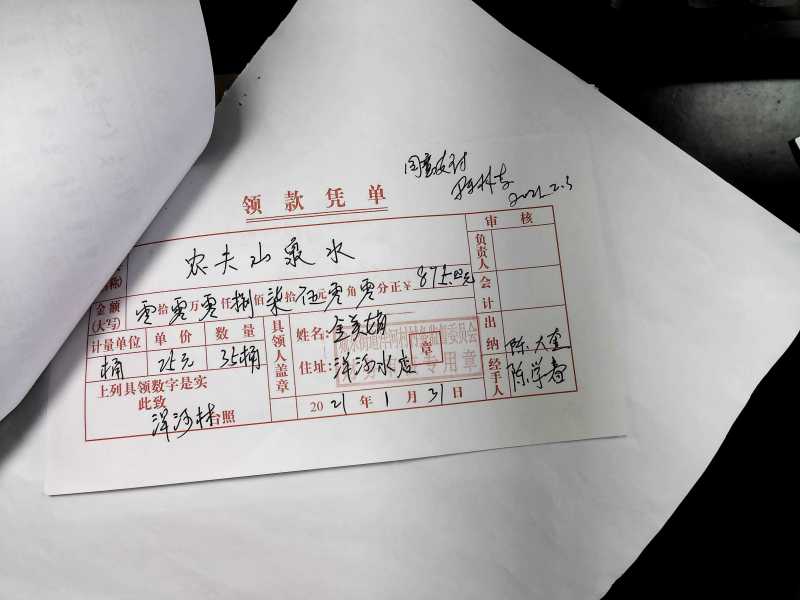 同意支付
2021.2.3
领款凭单
审核
农夫山泉水
负责人
金额(大写) 零拾零万零仟捌佰柒拾伍元零角零分正¥875.00元
会计
计量单位 单价 数量
桶 25元 35桶
具领人盖章
姓名:
住址:洋河水店
章
专用章
出纳
陈大奎
经手人
上列具领数字是实
此致
洋河村台照
2021年1月31日